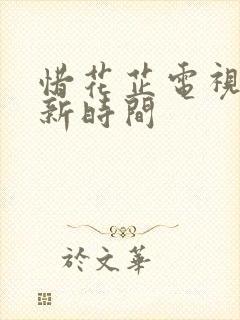 惜花芷電視
新時間
於文華